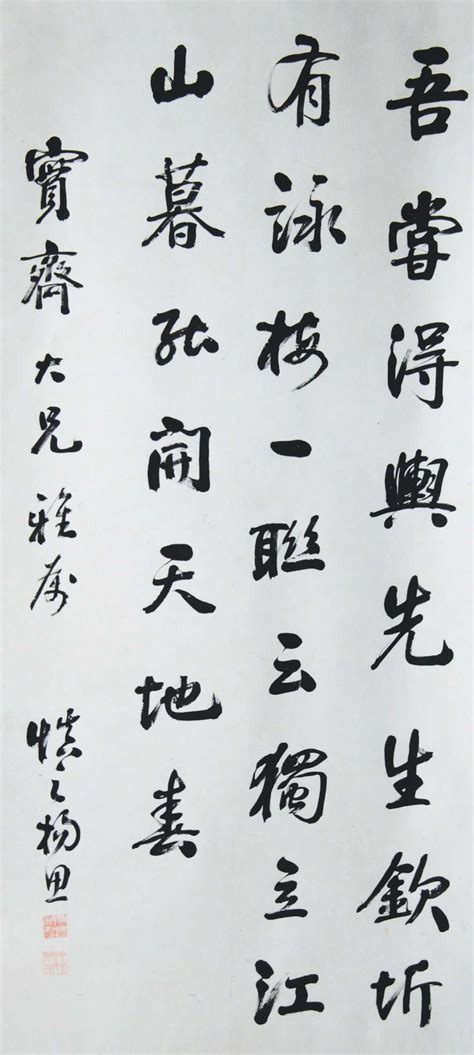 吾嘗得與先生欽圻
有詠梅一聯云獨立江
山暮能開天地春
實齋大兄雅屬
慎之楊思